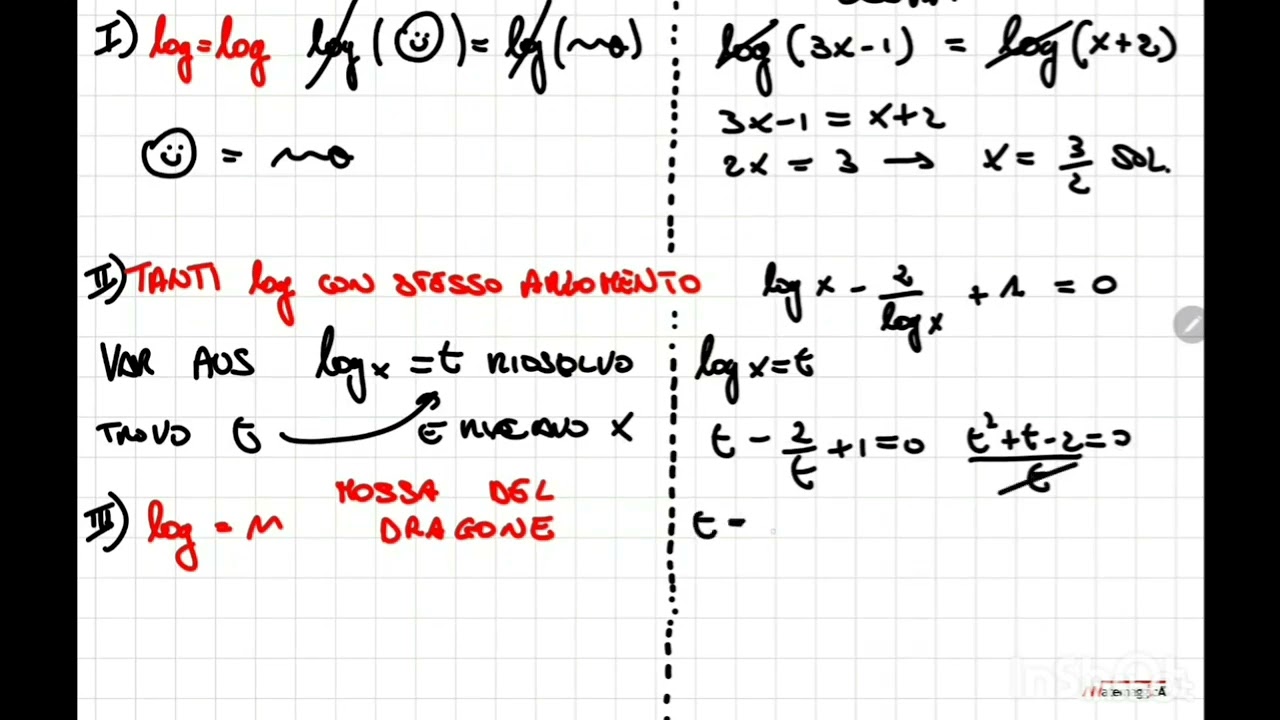 I) log = log log(☺) = log(ma)
☺ = ma
log(3x-1) = log(x+2)
3x-1 = x+2
2x = 3 → x = 3/2 SOL.
II) TANTI log CON STESSO ARGOMENTO
VAR AUS log x = t RIOSOLVO
TROVO t E RICAVO X
log x - 2/log x + 1 = 0
log x = t
t - 2/t + 1 = 0 t²+t-2/t = 0
t =
III) log = n MOSSA DEL
DRAGONE
InShOt
MatemagicA